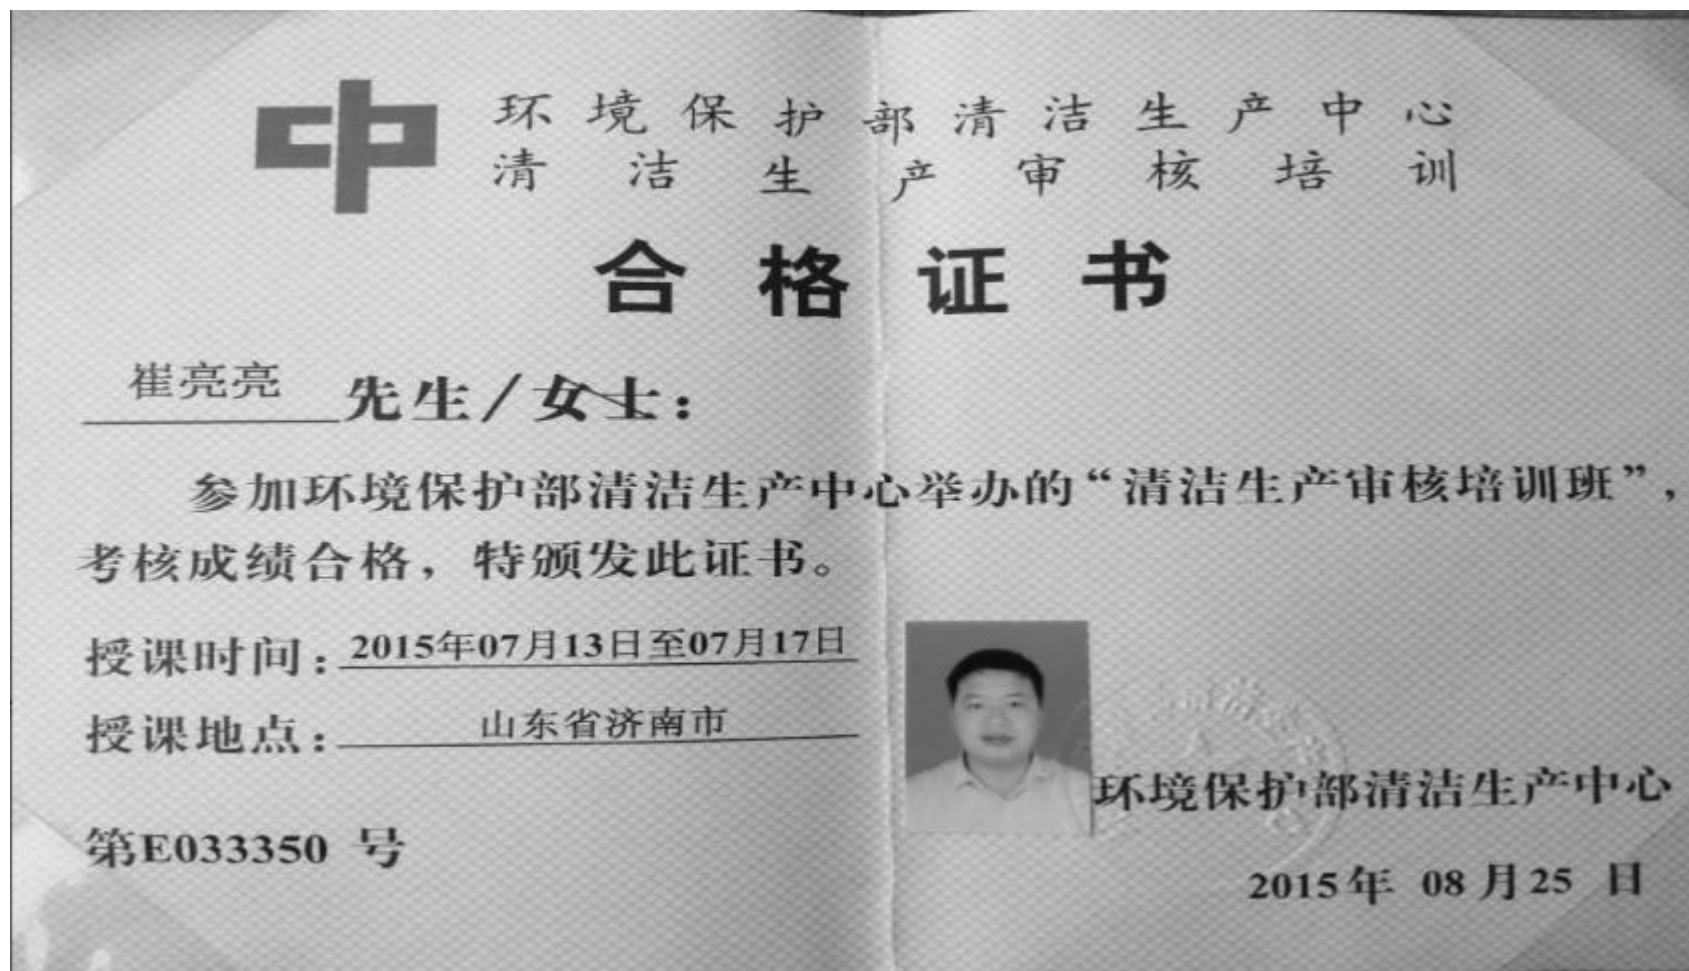 环境保护部清洁生产中心
清洁生产审核培训
合格证书
崔亮亮 先生/女士：
参加环境保护部清洁生产中心举办的“清洁生产审核培训班”，
考核成绩合格，特颁发此证书。
授课时间：2015年07月13日至07月17日
授课地点：山东省济南市
环境保护部清洁生产中心
第E033350 号
2015年 08月25 日